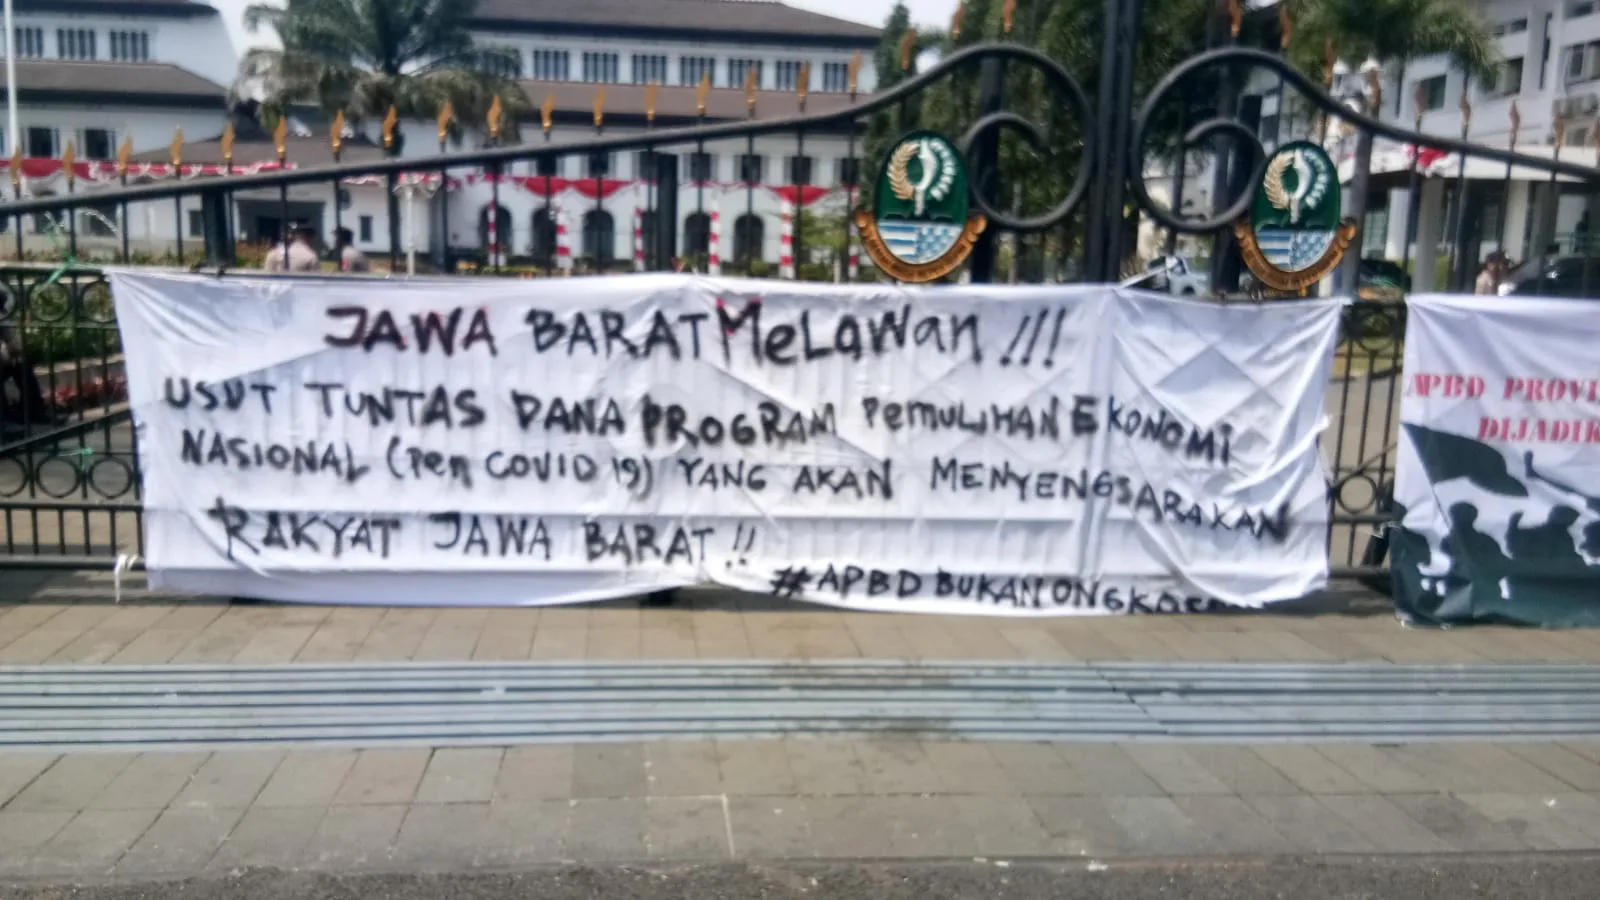 JAWA BARAT MeLaWan !!!
USUT TUNTAS DANA PROGRAM PeMULIHAN EKONOMi
NASIONAL (Pen COVID 19) YANG AKAN MENYENGSARAKAN
RAKYAT JAWA BARAT !!
#APBD BUKAN
APBD PROVI
DIJADIK